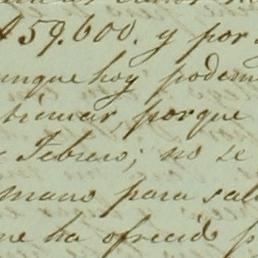 $59.600. y por
unque hoy podem
porque
Febrero; no se
mano para sal
me ha ofrecido p